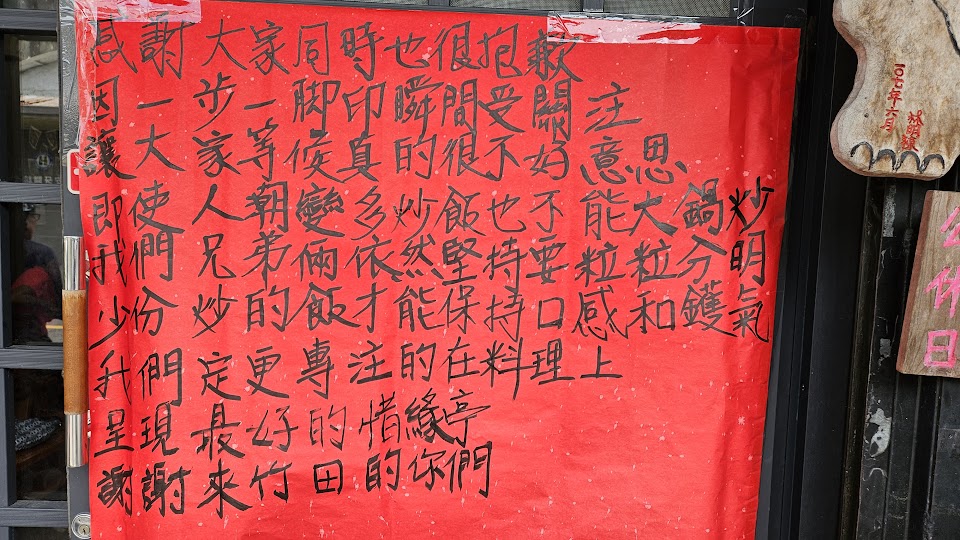 感謝大家同時也很抱歉
因一步一脚印瞬間受關注
讓大家等候真的很不好意思
即使人朝變多炒飯也不能大鍋炒
我們兄弟倆依然堅持要粒粒分明
少份炒的飯才能保持口感和鑊氣
我們定更專注的在料理上
呈現最好的惜緣亭
謝謝來竹田的你們
一〇七年六月
公休日